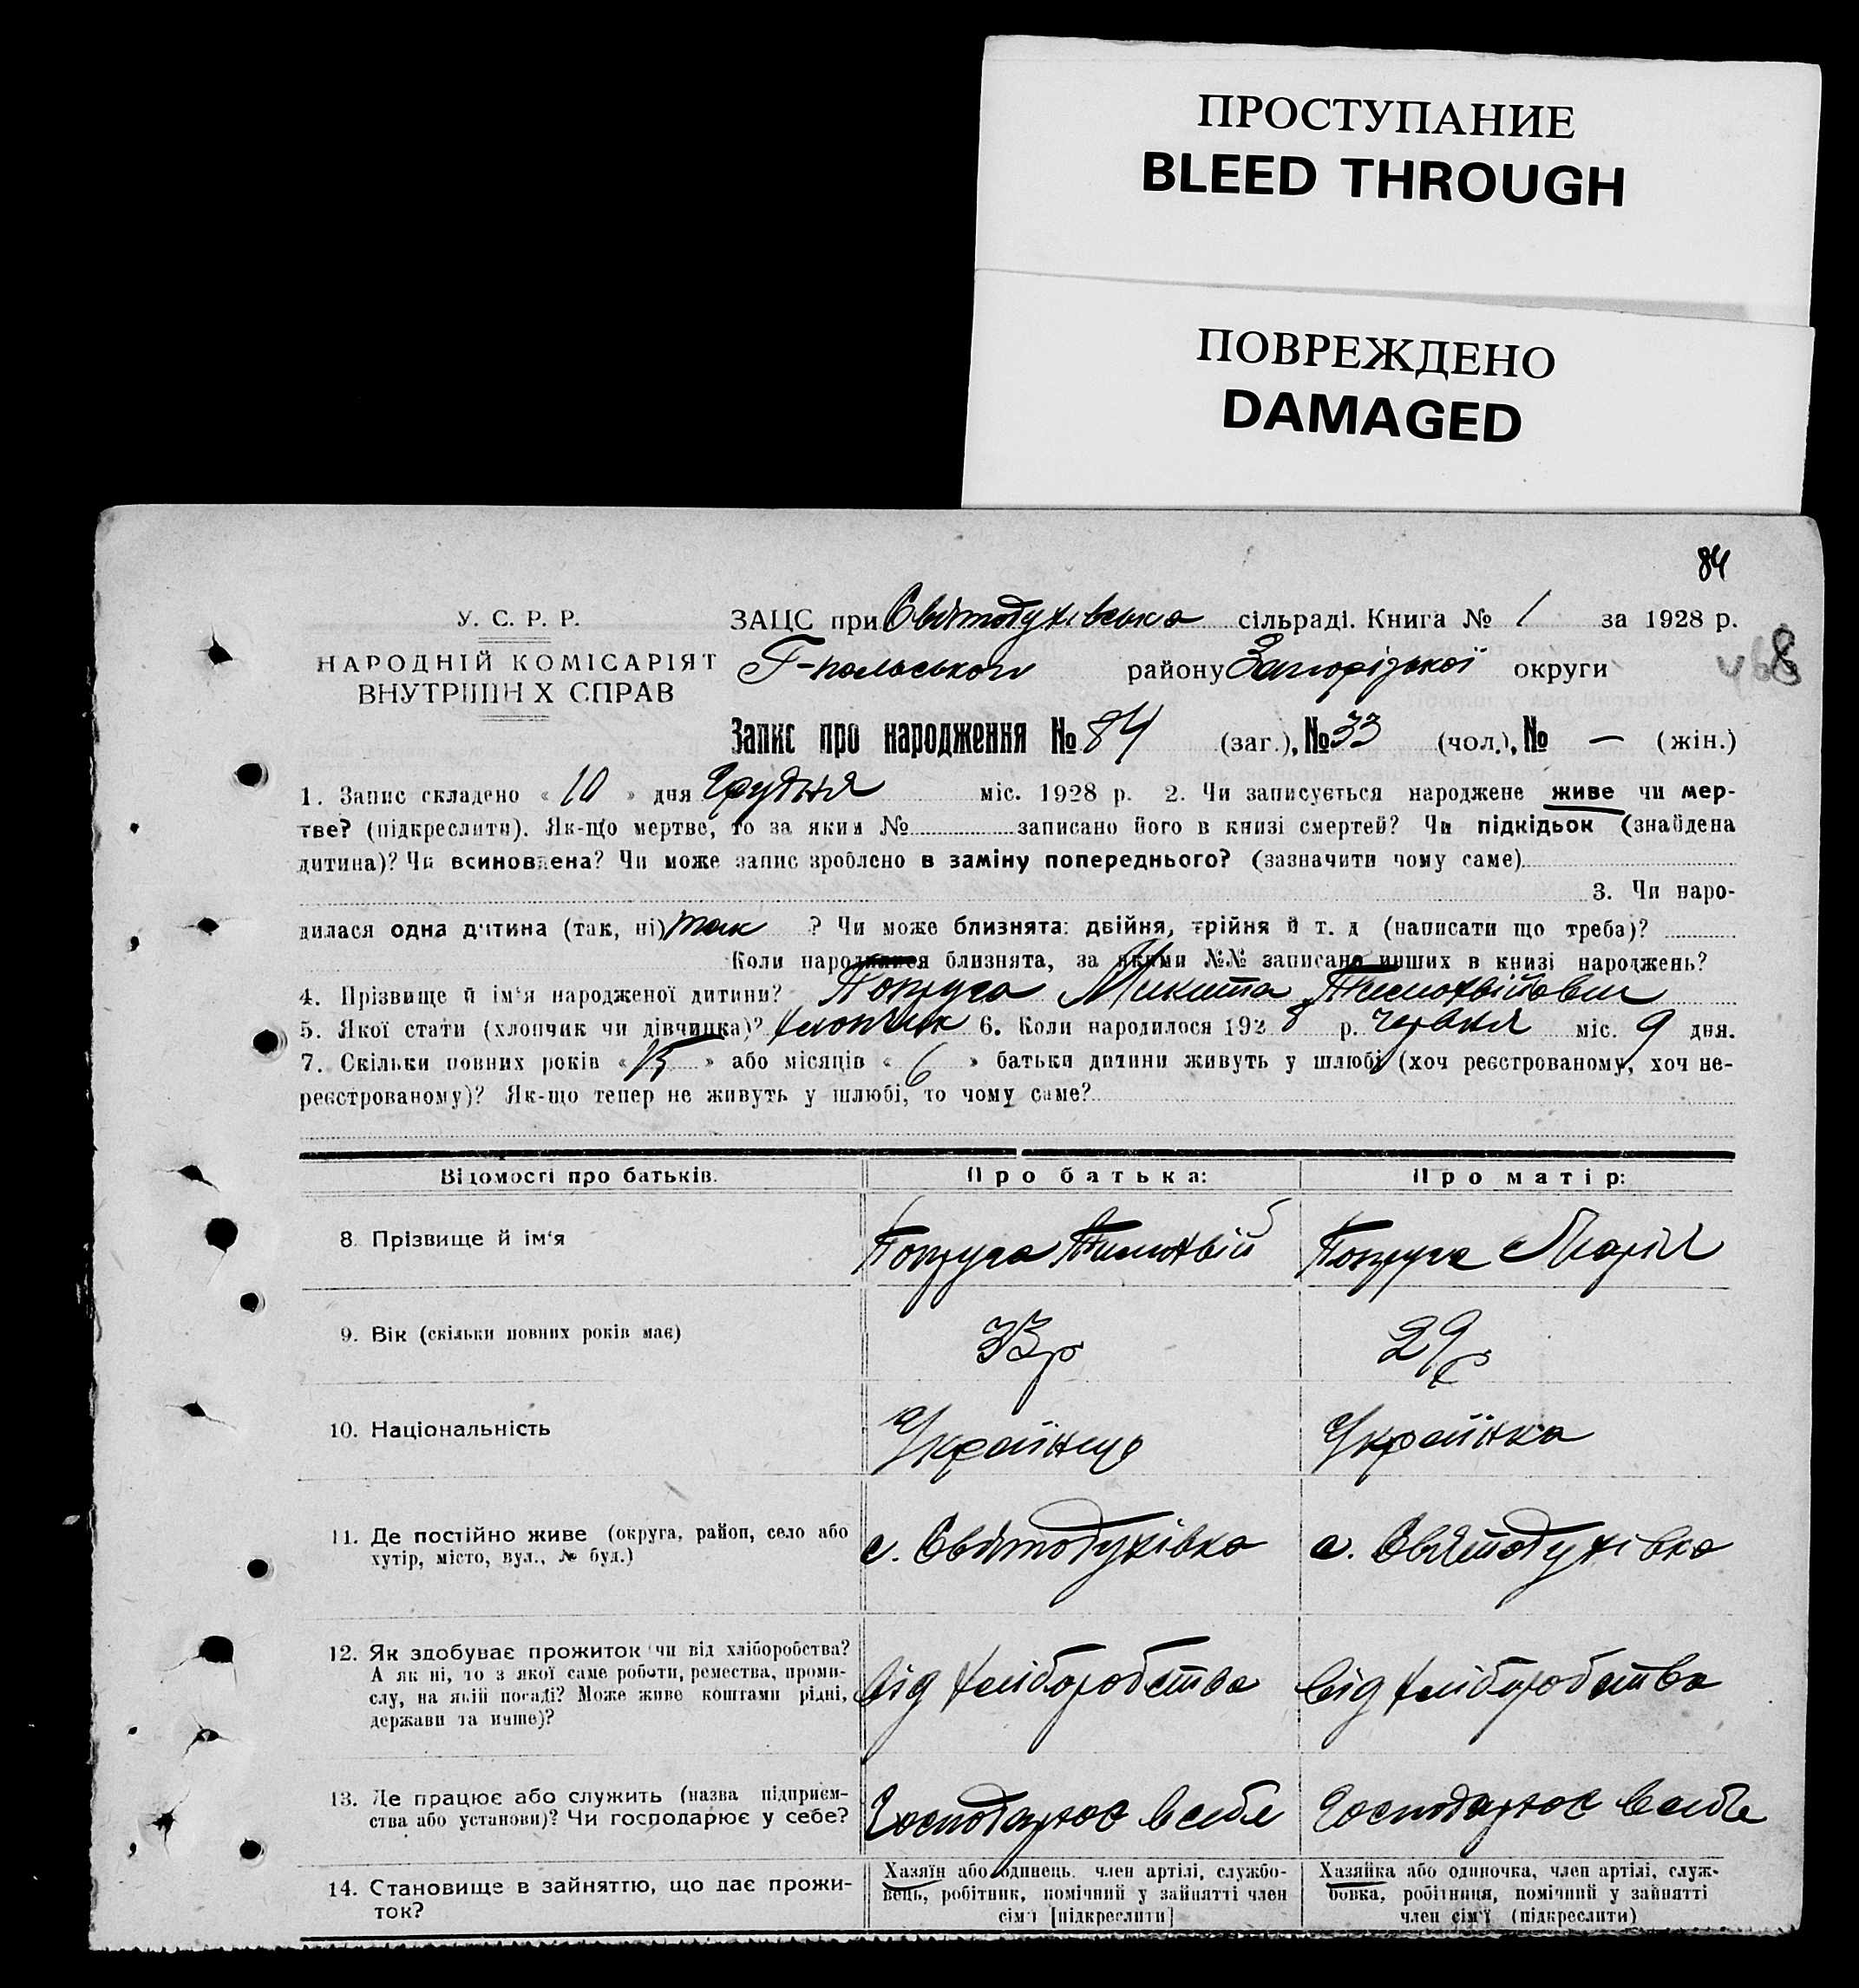 ПРОСТУПАНИЕ
BLEED THROUGH
ПОВРЕЖДЕНО
DAMAGED
84
У. С. Р. Р.
ЗАЦС при Святодухівська сільраді. Книга № 1 за 1928 р.
НАРОДНІЙ КОМІСАРІЯТ
Г-польського району Запорізької округи
ВНУТРІШНІХ СПРАВ
Запис про народження № 84 (заг.), № 33 (чол.), № — (жін.)
1. Запис складено « 10 » дня Грудня міс. 1928 р. 2. Чи записується народжене живе чи мер-
тве? (підкреслити). Як-що мертве, то за яким № записано його в книзі смертей? Чи підкідьок (знайдена
дитина)? Чи всиновлена? Чи може запис зроблено в заміну попереднього? (зазначити чому саме)
3. Чи наро-
дилася одна дитина (так, ні) так ? Чи може близнята: двійня, трійня й т. д (написати що треба)?
Коли народилися близнята, за якими №№ записано инших в книзі народжень?
4. Прізвище й ім'я народженої дитини? Попруга Микита Тимохвійович
5. Якої стати (хлопчик чи дівчинка)? хлопчик 6. Коли народилося 1928 р. червня міс. 9 дня.
7. Скільки повних років « » або місяців « 6 » батьки дитини живуть у шлюбі (хоч реєстрованому, хоч не-
реєстрованому)? Як-що тепер не живуть у шлюбі, то чому саме?
Відомості про батьків. Про батька: Про матір:
8. Прізвище й ім'я Попруга Тимохвій Попруга Марія
9. Вік (скільки повних років має) 33р 29р
10. Національність Українець Українка
11. Де постійно живе (округа, район, село або
хутір, місто, вул., № буд.)
с. Святодухівка с. Святодухівка
12. Як здобуває прожиток чи від хліборобства?
А як ні, то з якої саме роботи, ремества, проми-
слу, на якій посаді? Може живе коштами рідні,
держави та инше)?
від хліборобства від хліборобства
13. Де працює або служить (назва підприєм-
ства або установи)? Чи господарює у себе?
Господарює в себе Господарює в себе
14. Становище в зайняттю, що дає прожи-
ток?
Хазяїн або одинець, член артілі, службо-
вець, робітник, помічний у зайнятті член
сім'ї [підкреслити]
Хазяйка або одиночка, член артілі, служ-
бовка, робітниця, помічний у зайнятті
член сім'ї (підкреслити)